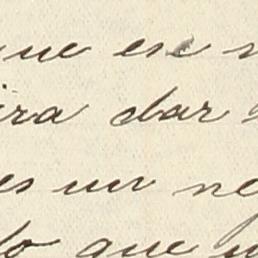 que ese
ira dar
es un
lo que